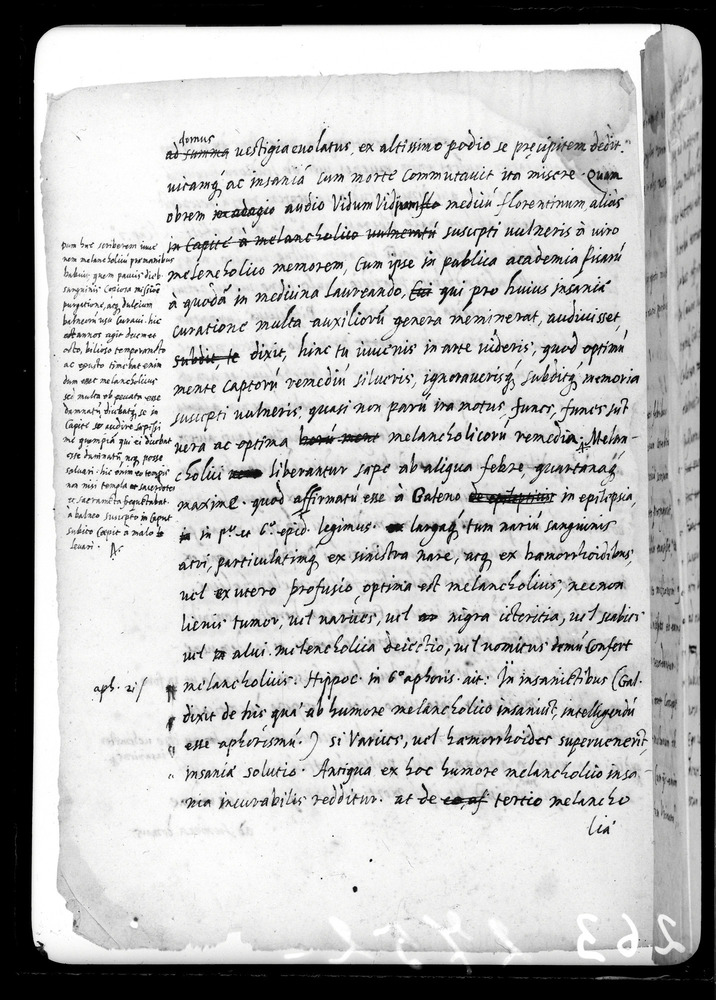 domus
ad summa vestigia evolatus, ex altissimo podio se pręcipitem dedit.
vicamq́ ac insaniá cum morte commutavit ita misere. Quam
obrem ex adagio audio Vidum Vidium medicú florentinum, aliás
in capite à melancholico vulneratú suscepti vulneris à viro
melencholico memorem, cum ipse in publica academia pisarú
à quodá in medicina laureando, qui pro huius insaniæ
curatione multa auxiliorú genera meminerat, audivisset
subdit, te dixit, hinc tu iuvenis in arte videris, quod optimú
mente captorú remediú silueris, ignoraverisq́, subditq́ memoria
suscepti vulneris, quasi non parú ira motus, funes, funes sút
vera ac optima melancholicorú remedia. Melan-
cholici liberantur sæpe ab aliqua febre, quartanaq́
maxime. quod affirmatú esse à Galeno in epilepsia,
in pº. et 6º. epid. legimus. largaq́ tum nariú sanguinis
atri, particulatimq́ ex sinistra nare, atq́ ex hæmorrhoidibus,
vel ex utero profusio, optima est melancholicis, necnon
lienis tumor, vel varices, vel nigra icteritia, vel scabies
vel alvi melencholica deiectio, vel vomitus demú confert
melancholicis. Hippoc. in 6º aphoris. ait: In insanientibus (Gal.
dixit de his qua' ab humore melancholico insaniút, intelligendú
esse aphorismú.) si varices, vel hæmorrhoides supervenerit,
insaniæ solutio. Antiqua ex hoc humore melancholico insa-
nia incurabilis redditur. at de tertio melancho
liá
Dum hæc scriberem iuve
nem melancholicú præ manibus
habui, quem paucis dieb.
sanguinis copiosa missione
purgatione, atq́ dulcium
balneorú usu curavi. hic
ac opisto timebat enim
dum esse melancholicus
se multa ob peccata esse
damnatú dicebatq́ se in
capite audire sæpissi
me quempiá qui ei dicebat
este damnatú, neq́ posse
salvari. hic enim eo tempore
non nisi templa et sacerdotes
et sacramenta frequentabat.
à balneo suscepto in caput
subito cœpit a malo
levari.
aph. 21